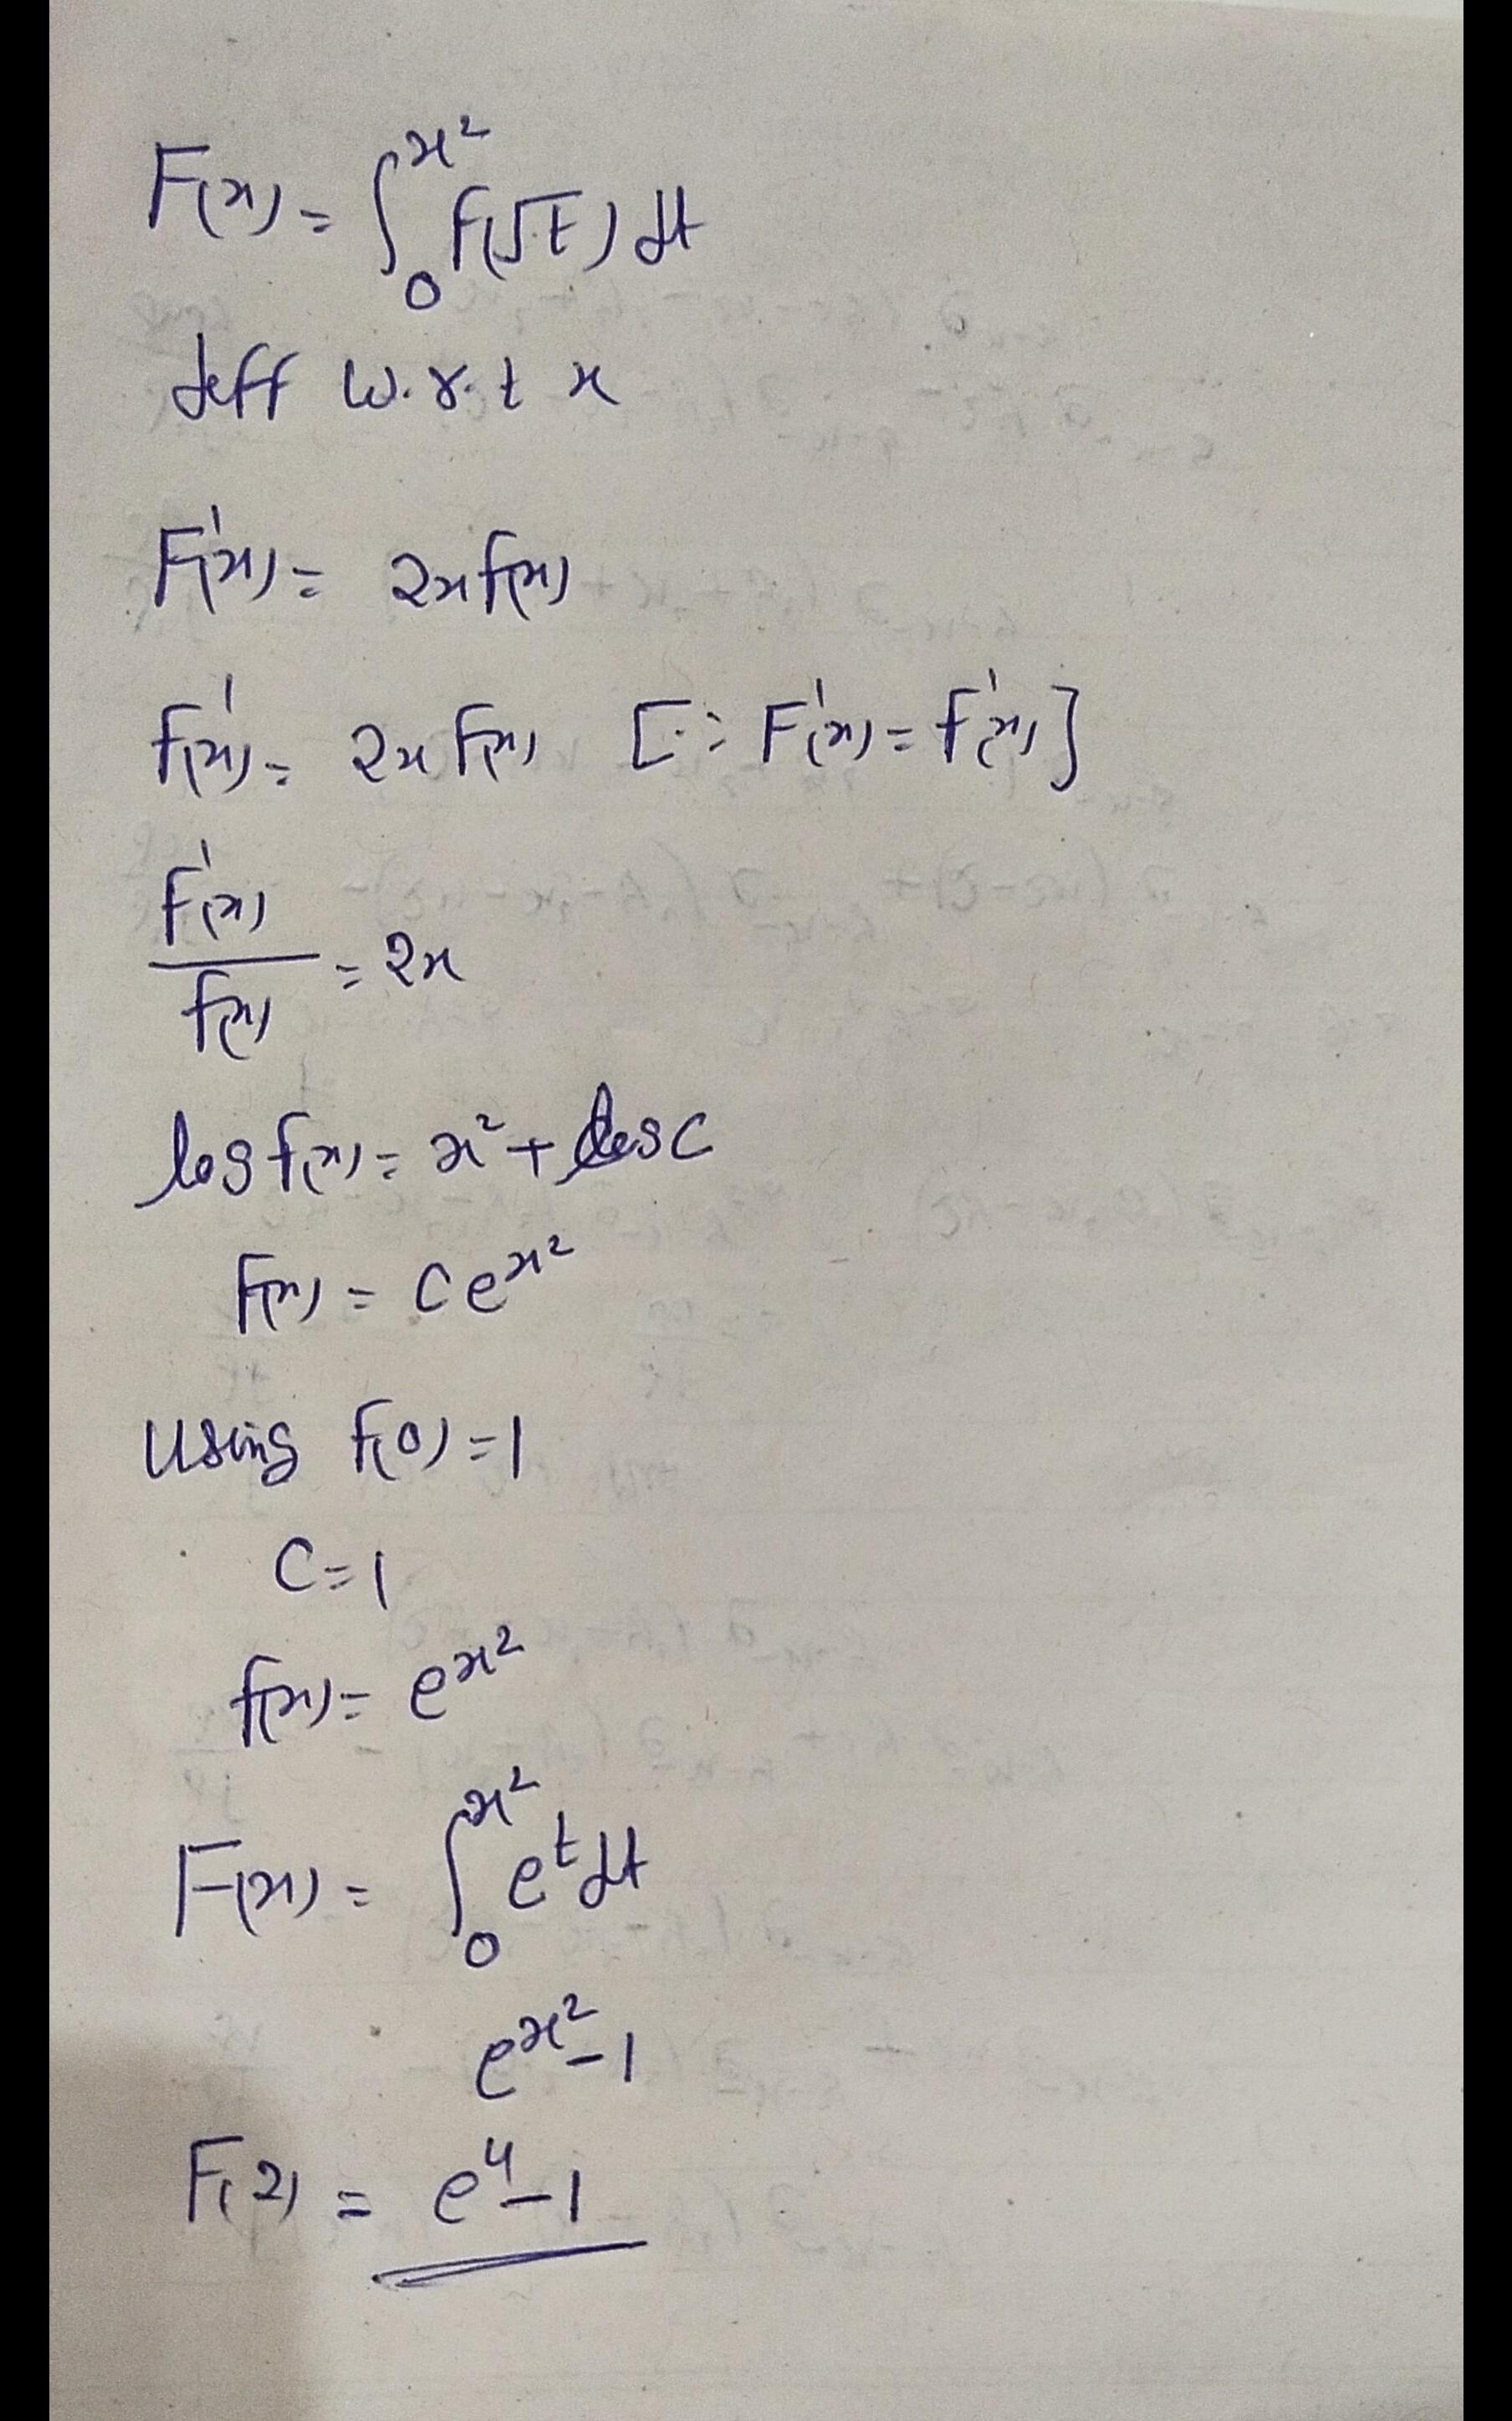 F(x) = ∫₀^{x²} f(√t) dt
deff w.r.t x
F'(x) = 2x f(x)
f'(x) = 2x f(x) [∵ F'(x) = f'(x)]
f'(x)/f(x) = 2x
log f(x) = x² + log c
f(x) = c e^{x²}
Using f(0) = 1
C = 1
f(x) = e^{x²}
F(x) = ∫₀^{x²} e^t dt
e^{x²} - 1
F(2) = e⁴ - 1